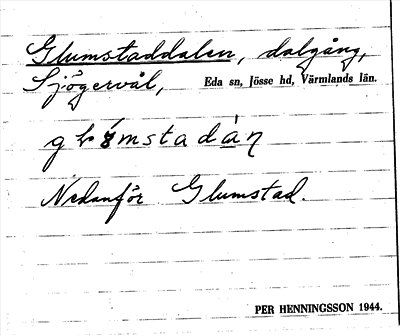 Glumstaddalen, dalgång,
Sjögervål, Eda sn, Jösse hd, Värmlands län.
Nedanför Glumstad.
PER HENNINGSSON 1944.